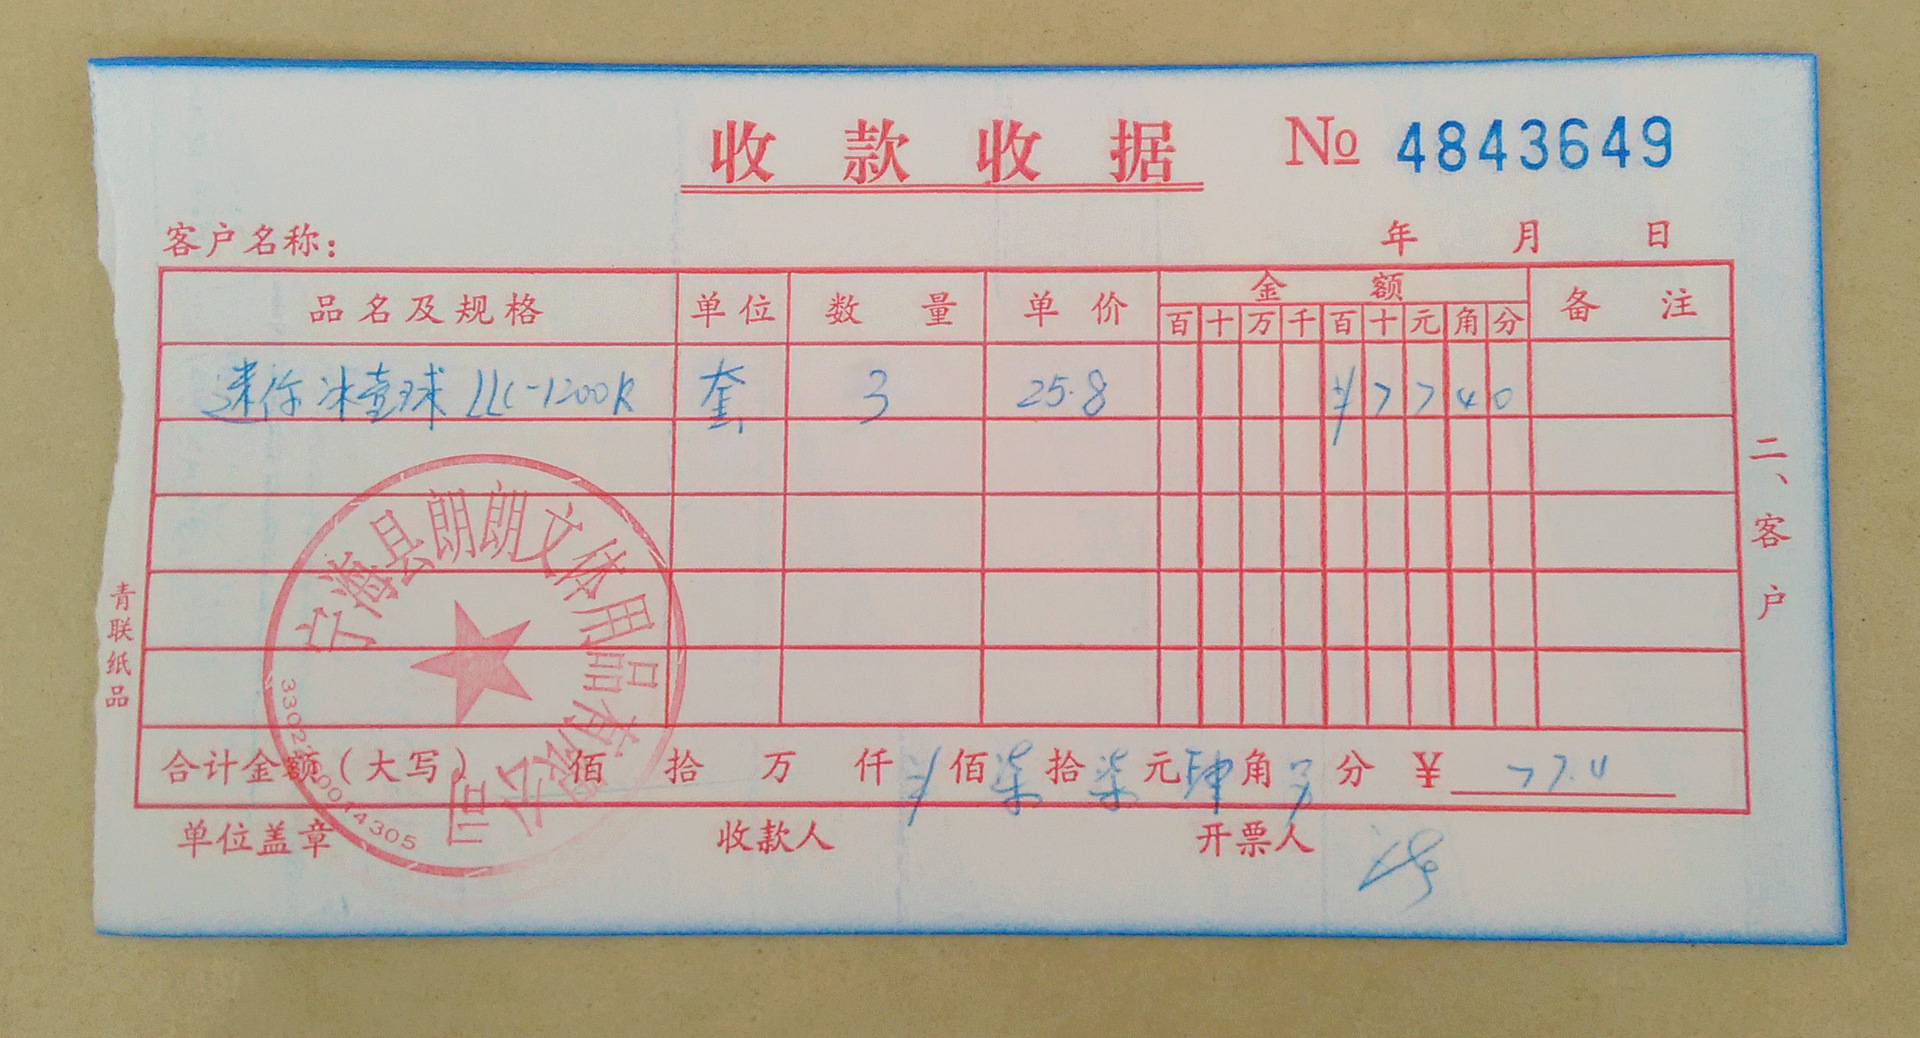 收款收据 № 4843649
客户名称： 年 月 日
品名及规格 单位 数量 单价 金额 备注
百 十 万 千 百 十 元 角 分
迷你冰壶球 LLC-1200R 套 3 25.8 ¥ 7 7 4 0
二、客户
青联纸品
宁海县朗朗文体用品有限公司
合计金额（大写） 佰 拾 万 仟 ¥ 佰 柒 拾 柒 元 肆 角 另 分 ¥ 77.4
单位盖章 收款人 开票人